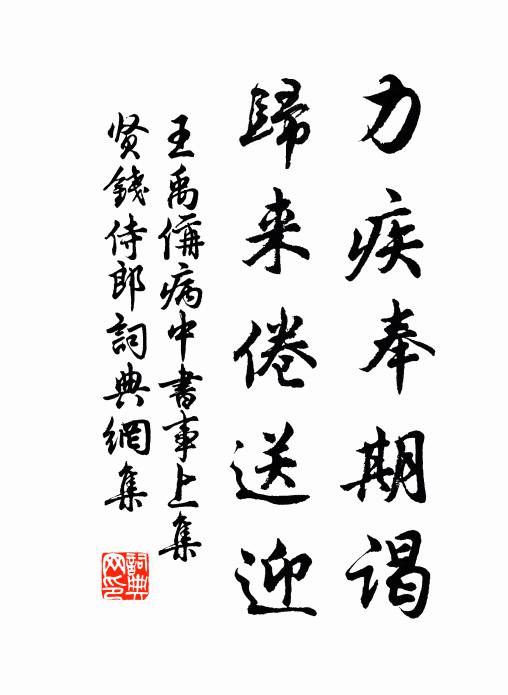 力疾奉期谒
歸来倦送迎
王禹偁病中書事上集
贤錢侍郎詞典網集
詞典网印